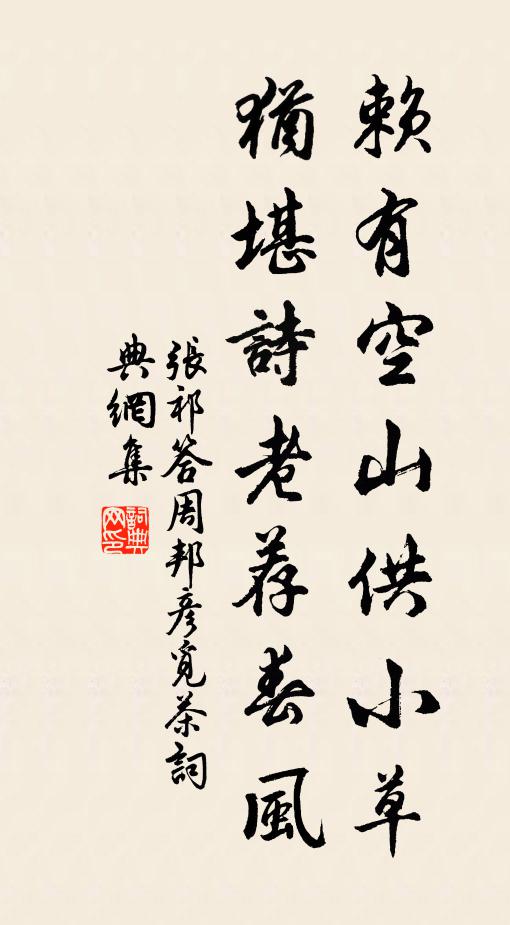 賴有空山供小草
猶堪詩老荐春風
張祁答周邦彦覓茶詞
典網集
詞典網印